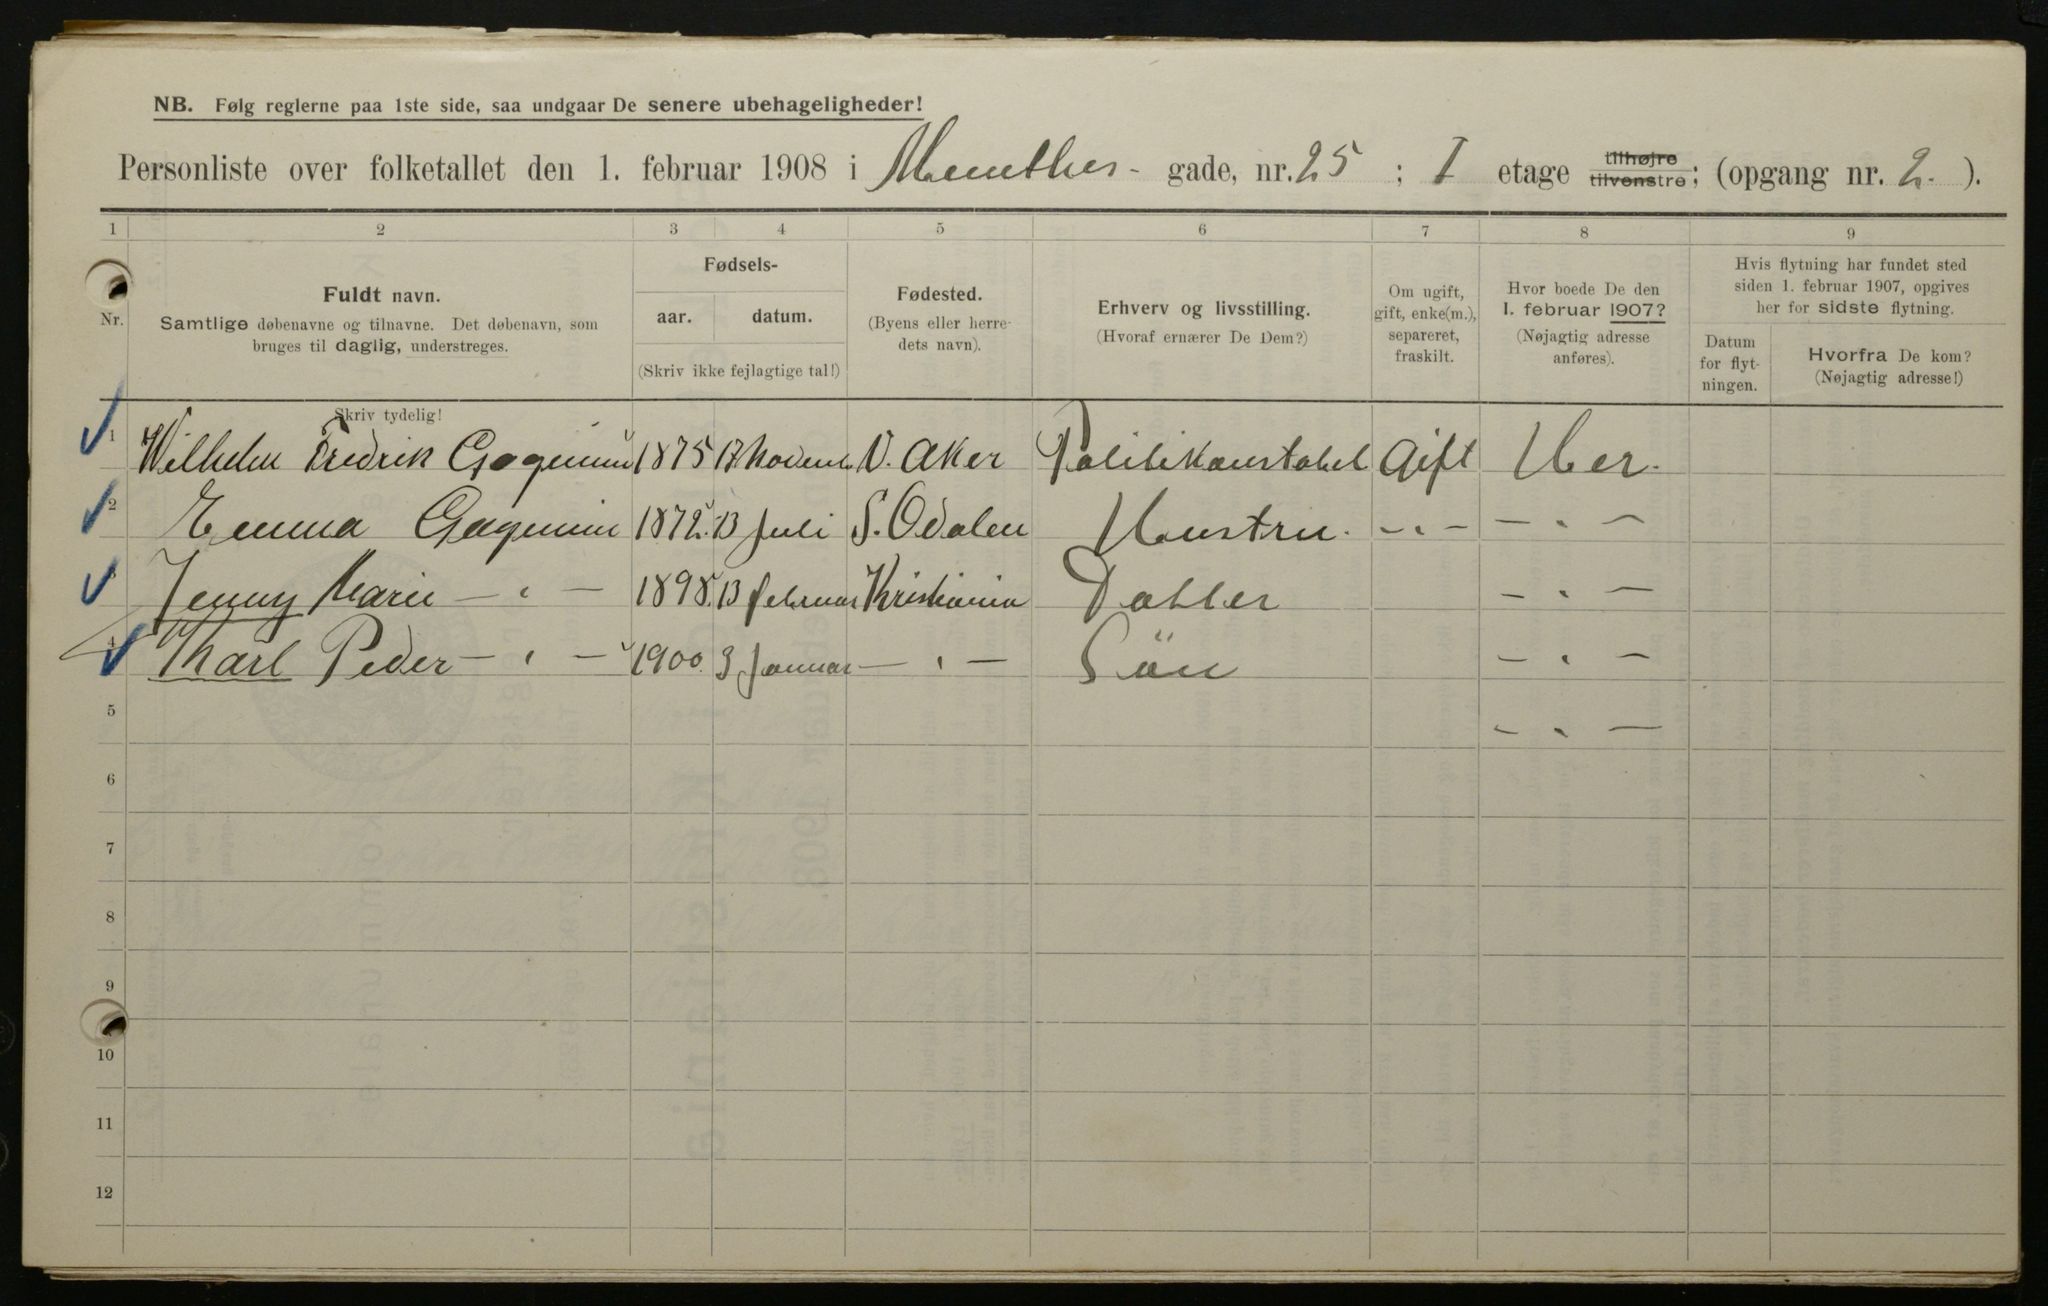 NB. Følg reglerne paa 1ste side, saa undgaar De senere ubehageligheder!
Personliste over folketallet den 1. februar 1908 i Menthes- gade, nr. 25 ; I etage tilhøjre tilvenstre; (opgang nr. 2. ).
1 2 3 4 5 6 7 8 9
Nr.
Fuldt navn.
Samtlige døbenavne og tilnavne. Det døbenavn, som
bruges til daglig, understreges.
Skriv tydelig!
Fødsels-
aar. datum.
(Skriv ikke fejlagtige tal!)
Fødested.
(Byens eller herre-
dets navn).
Erhverv og livsstilling.
(Hvoraf ernærer De Dem?)
Om ugift,
gift, enke(m.),
separeret,
fraskilt.
Hvor boede De den
1. februar 1907?
(Nøjagtig adresse
anføres).
Hvis flytning har fundet sted
siden 1. februar 1907, opgives
her for sidste flytning.
Datum
for flyt-
ningen.
Hvorfra De kom?
(Nøjagtig adresse!)
1 Wilhelm Fredrik 1875 17 Novem V. Aker Politikonstabel Gift Her.
2 Emma 1872. 13 Juli S. Odalen Hustru. - . - - . -
3 Jenny Marie - " - 1898. 13 februar Kristiania Datter - . -
4 Karl Peder - " - 1900. 3 Januar - " - Sön - . -
5 - . -
6
7
8
9
10
11
12